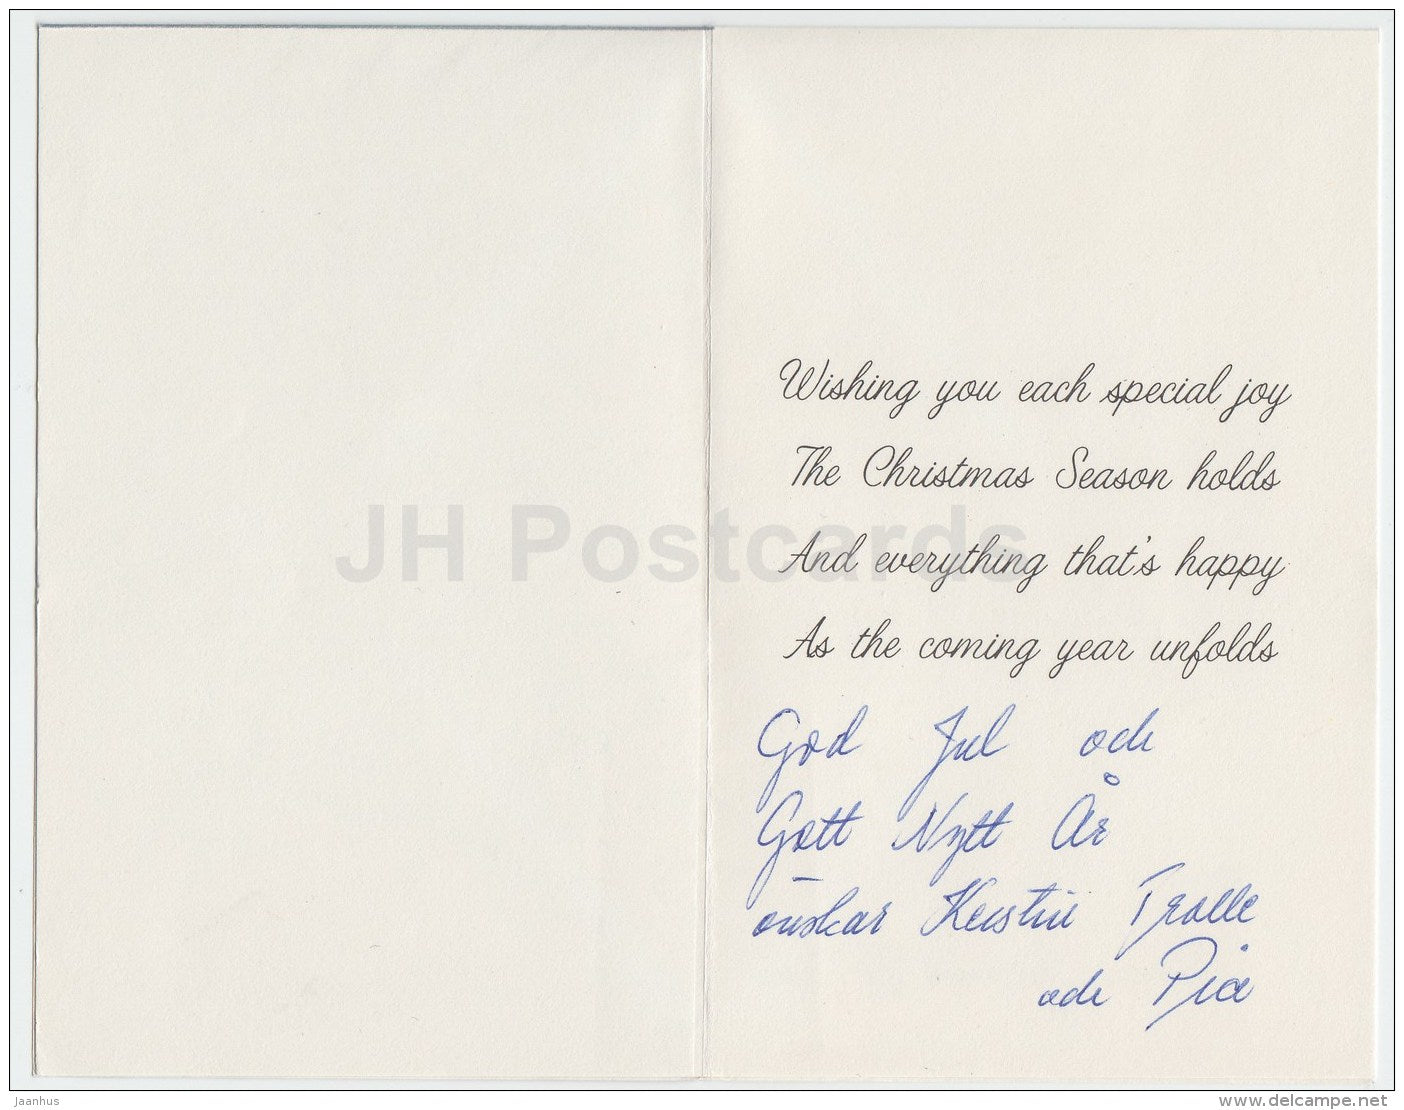 Wishing you each special joy
The Christmas Season holds
And everything that's happy
As the coming year unfolds
God Jul och
Gott Nytt År
önskar Kerstin Trolle
och Pia
JH Postcards
Jaanhus
www.delcampe.net